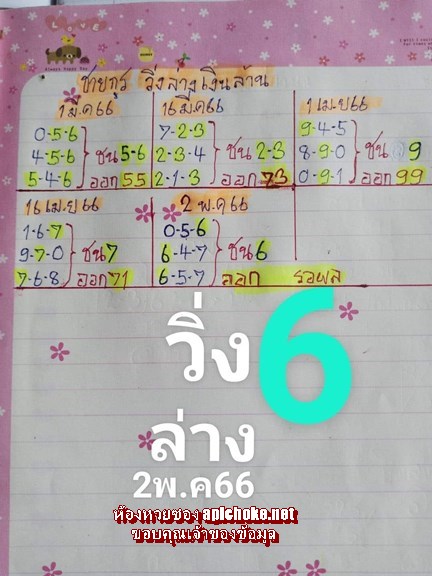 ชายกร วิ่งล่างเงินล้าน
1 มี.ค 66
0-5-6
4-5-6 ชน 5-6
5-4-6 ออก 55
16 มี.ค 66
7-2-3
2-3-4 ชน 2-3
2-1-3 ออก 73
1 เม.ย 66
9-4-5
8-9-0 ชน 9
0-9-1 ออก 99
16 เม.ย 66
1-6-7
9-7-0 ชน 7
7-6-8 ออก 71
2 พ.ค 66
0-5-6
6-4-7 ชน 6
6-5-7 ออก รอผล
วิ่ง 6
ล่าง
2พ.ค66
ห้องหวยซอง apichoke.net
ขอบคุณเจ้าของข้อมูล